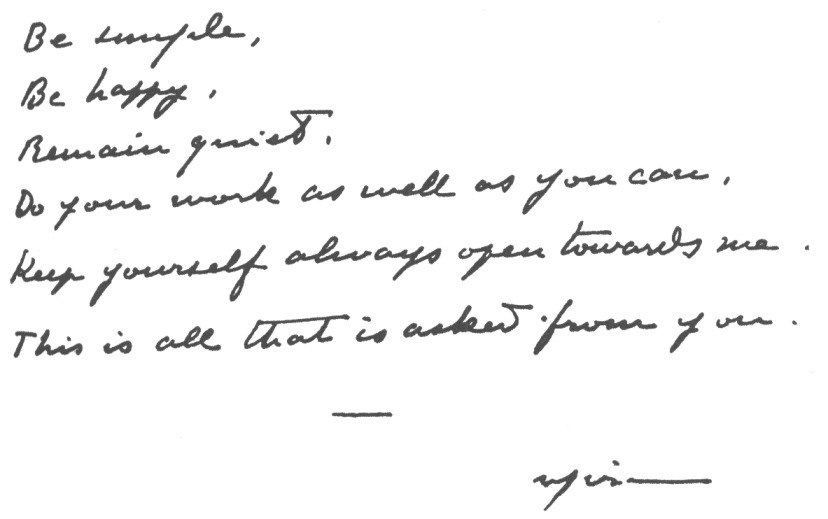 Be simple,
Be happy.
Remain quiet.
Do your work as well as you can,
Keep yourself always open towards me.
This is all that is asked from you.